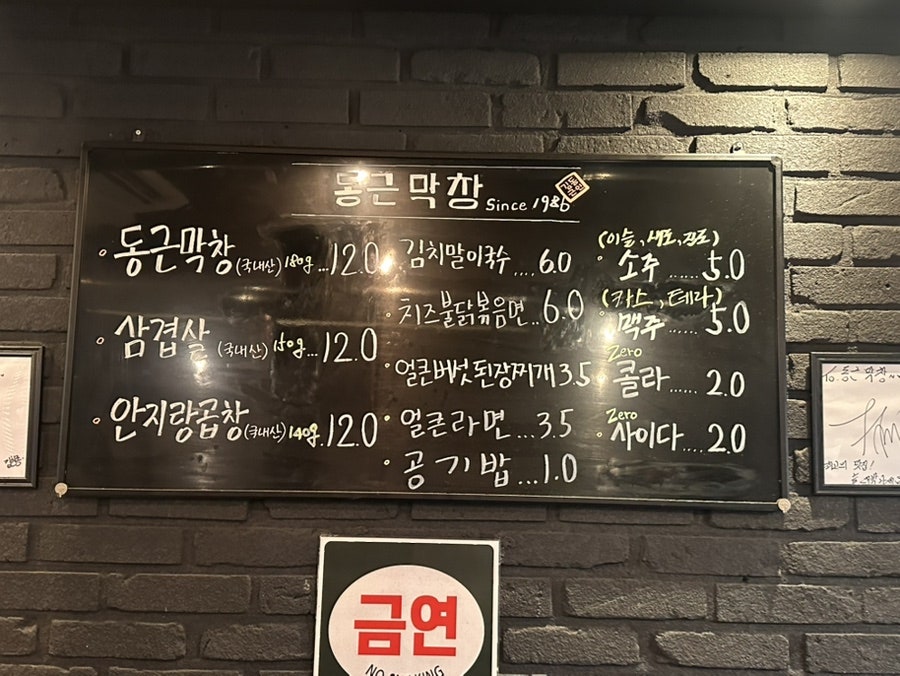 동근막창 Since 1986
• 동근막창 (국내산) 180g...12.0
• 삼겹살 (국내산) 150g...12.0
• 안지랑곱창 (국내산) 140g.12.0
• 김치말이국수....6.0
• 치즈불닭볶음면..6.0
• 얼큰버섯된장찌개 3.5
• 얼큰라면...3.5
• 공기밥...1.0
(이슬, 새로, 진로)
• 소주......5.0
(카스, 테라)
• 맥주......5.0
Zero
• 콜라......2.0
Zero
• 사이다...2.0
금연
NO SMOKING
To. 동근막창
최고의 맛집!